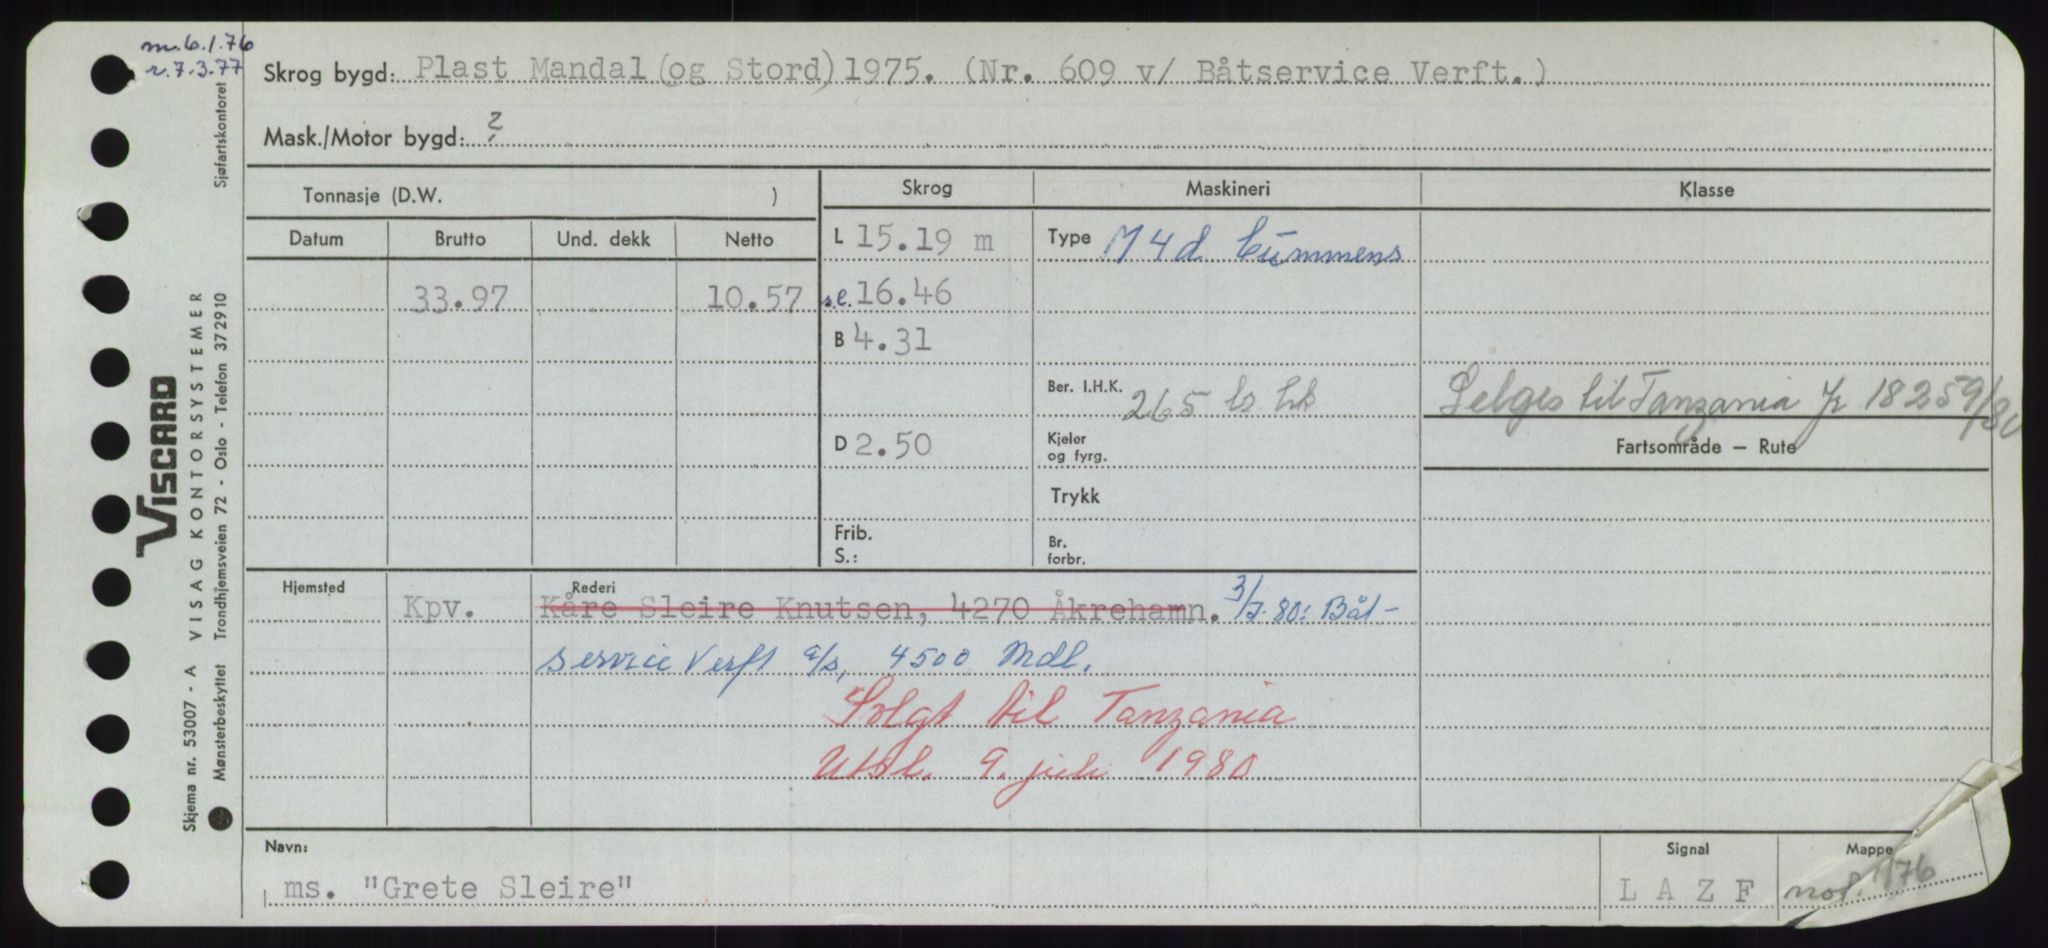 m. 6.1.76
r. 7.3.77
Sjøfartskontoret
Skrog bygd: Plast Mandal (og Stord) 1975. (Nr. 609 v/ Båtservice Verft.)
Mask./Motor bygd: ?
Tonnasje (D.W. )
Skrog
Maskineri
Klasse
Datum
Brutto
Und. dekk
Netto
L 15.19 m
Type M 4 d Cummens
33.97
10.57
s.l. 16.46
B 4.31
Ber. I.H.K. 265 b. hk
Selges til Tanzania Jr 18259/80
D 2.50
Kjeler
og fyrg.
Fartsområde — Rute
Trykk
Frib.
S.:
Br.
forbr.
Hjemsted
Rederi
Kpv.
Kåre Sleire Knutsen, 4270 Åkrehamn. 3/7-80: Båt-
service Verft a/s, 4500 Mdl.
Solgt til Tanzania
Utsl. 9. juli 1980
Navn:
ms. "Grete Sleire"
Signal
L A Z F
Mappe
not. 1/76
VISCARD
Skjema nr. 53007 - A VISAG KONTORSYSTEMER
Mønsterbeskyttet Trondhjemsveien 72 - Oslo - Telefon 372910